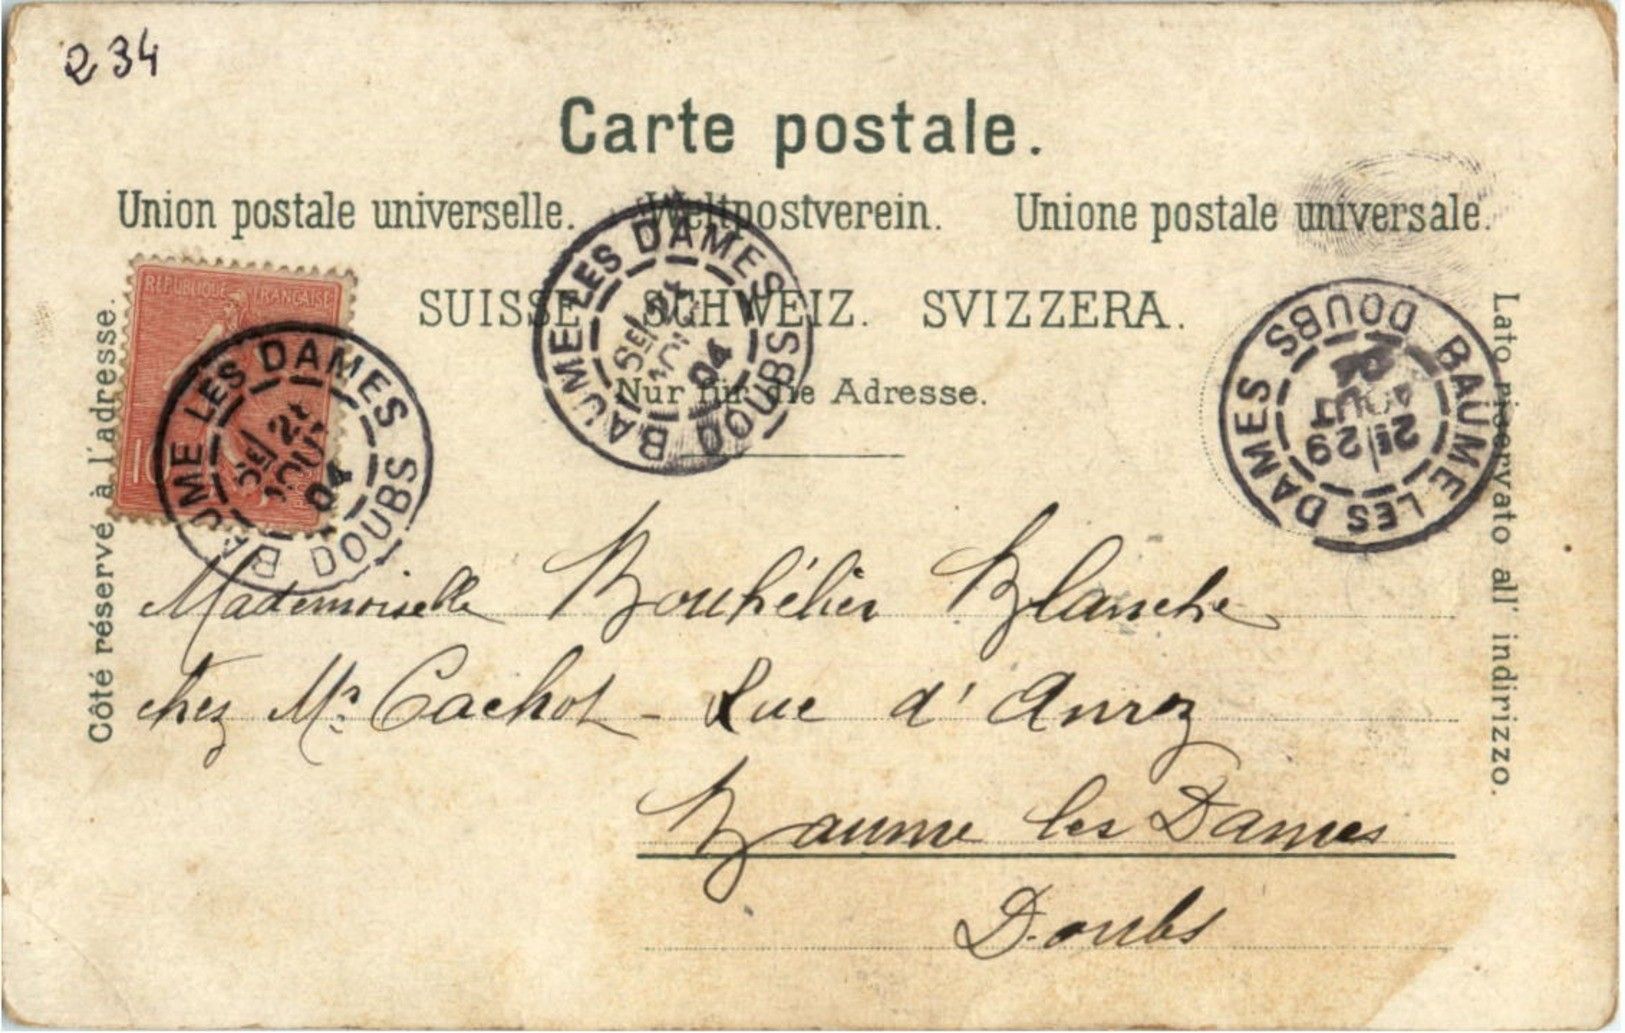 234
Carte postale.
Union postale universelle. Weltpostverein. Unione postale universale.
SUISSE. SCHWEIZ. SVIZZERA.
Nur für die Adresse.
Côté réservé à l'adresse.
Lato riservato all' indirizzo.
REPUBLIQUE FRANÇAISE
BAUME LES DAMES
AOUT
04
DOUBS
BAUME LES DAMES
04
DOUBS
BAUME LES DAMES
21
AOUT
04
DOUBS
Mademoiselle Bouhélier Blanche
chez Mr. Cachot - Rue d' Anroz
Baume les Dames
Doubs